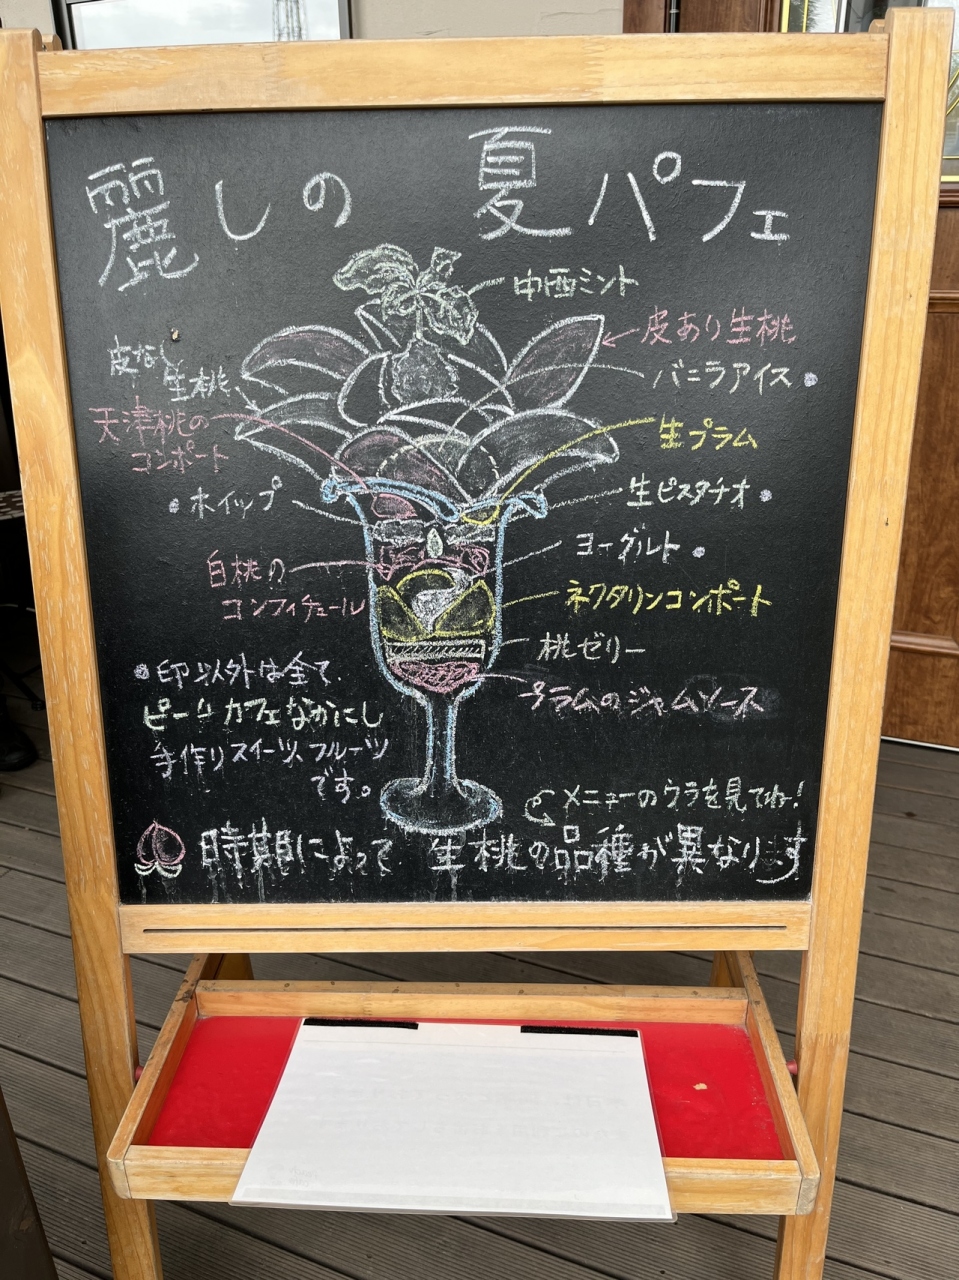 麗しの 夏パフェ
中西ミント
皮あり生桃
バニラアイス ●
生プラム
生ピスタチオ ●
ヨーグルト ●
ネクタリンコンポート
桃ゼリー
プラムのジャムソース
皮なし
生桃
天津桃の
コンポート
● ホイップ
白桃の
コンフィチュール
●印以外は全て、
ピーチカフェなかにし
手作りスイーツ、フルーツ
です。
メニューのウラを見てね!
時期によって 生桃の品種が異なります